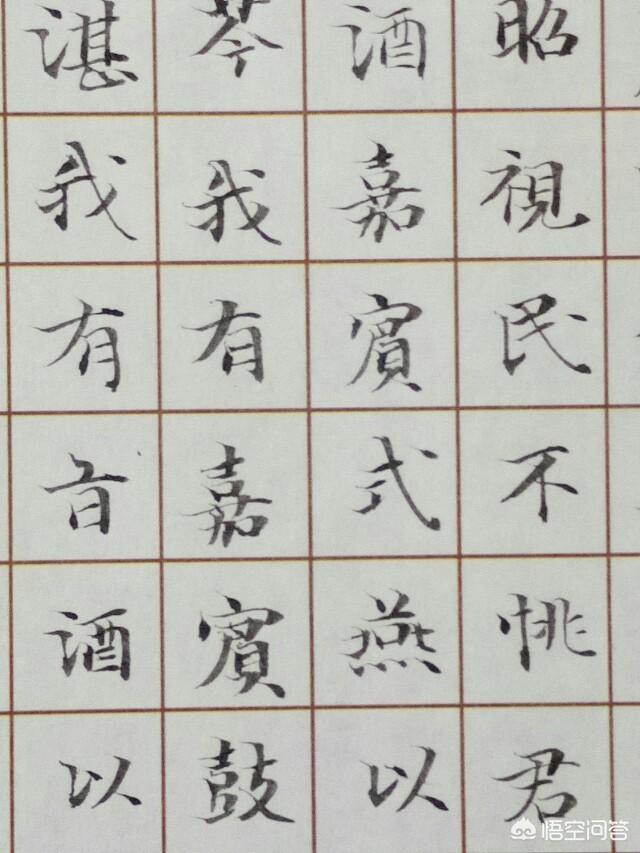 昭視民不恌君
酒嘉賓式燕以
芩我有嘉賓鼓
湛我有旨酒以
悟空问答